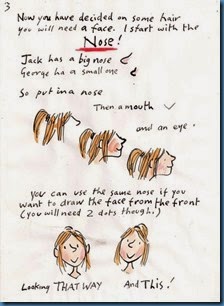 3
Now you have decided on some hair
you will need a face. I start with the
Nose!
Jack has a big nose
George ha a small one
So put in a nose
Then a mouth
and an eye.
You can use the same nose if you
want to draw the face from the front
(you will need 2 dots though.)
Looking THAT WAY And This!